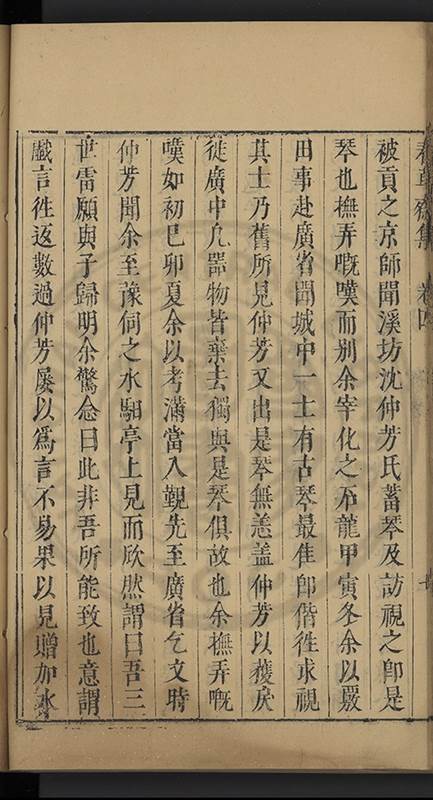 春草齋集 卷四 十
被貢之京師聞溪坊沈仲芳氏蓄琴及訪視之卽是
琴也撫弄嘅嘆而別余宰化之石龍甲寅冬余以嚴
田事赴廣省聞城中一士有古琴最隹卽偕徃求視
其士乃舊所見仲芳又出是琴無恙蓋仲芳以獲戾
徙廣中凢噐物皆棄去獨與是琴俱故也余撫弄嘅
嘆如初巳卯夏余以考滿當入覲先至廣省乞文時
仲芳聞余至豫伺之水馹亭上見而欣然謂曰吾三
世雷願與子歸明余驚念曰此非吾所能致也意謂
戲言徃返數過仲芳屡以爲言不易果以見贈加氷